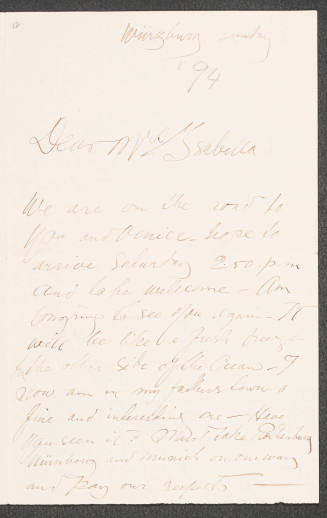 Würzburg Sunday
'94
Dear Mrs Isabella
We are on the road to
you and Venice – hope to
arrive Saturday 2 50 p.m
and take welcome – Am
longing to see you again – It
will be like a fresh breeze
the other side of the Ocean – I
now am in my fathers town a
fine and interesting one – Have
you seen it? Must take Rothenburg
Nürnburg and Munich on our way
and pay our respects –